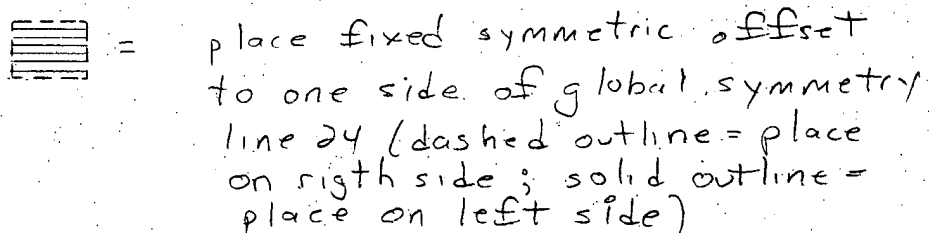 = place fixed symmetric offset
to one side of global symmetry
line 24 (dashed outline = place
on rigth side; solid outline =
place on left side)